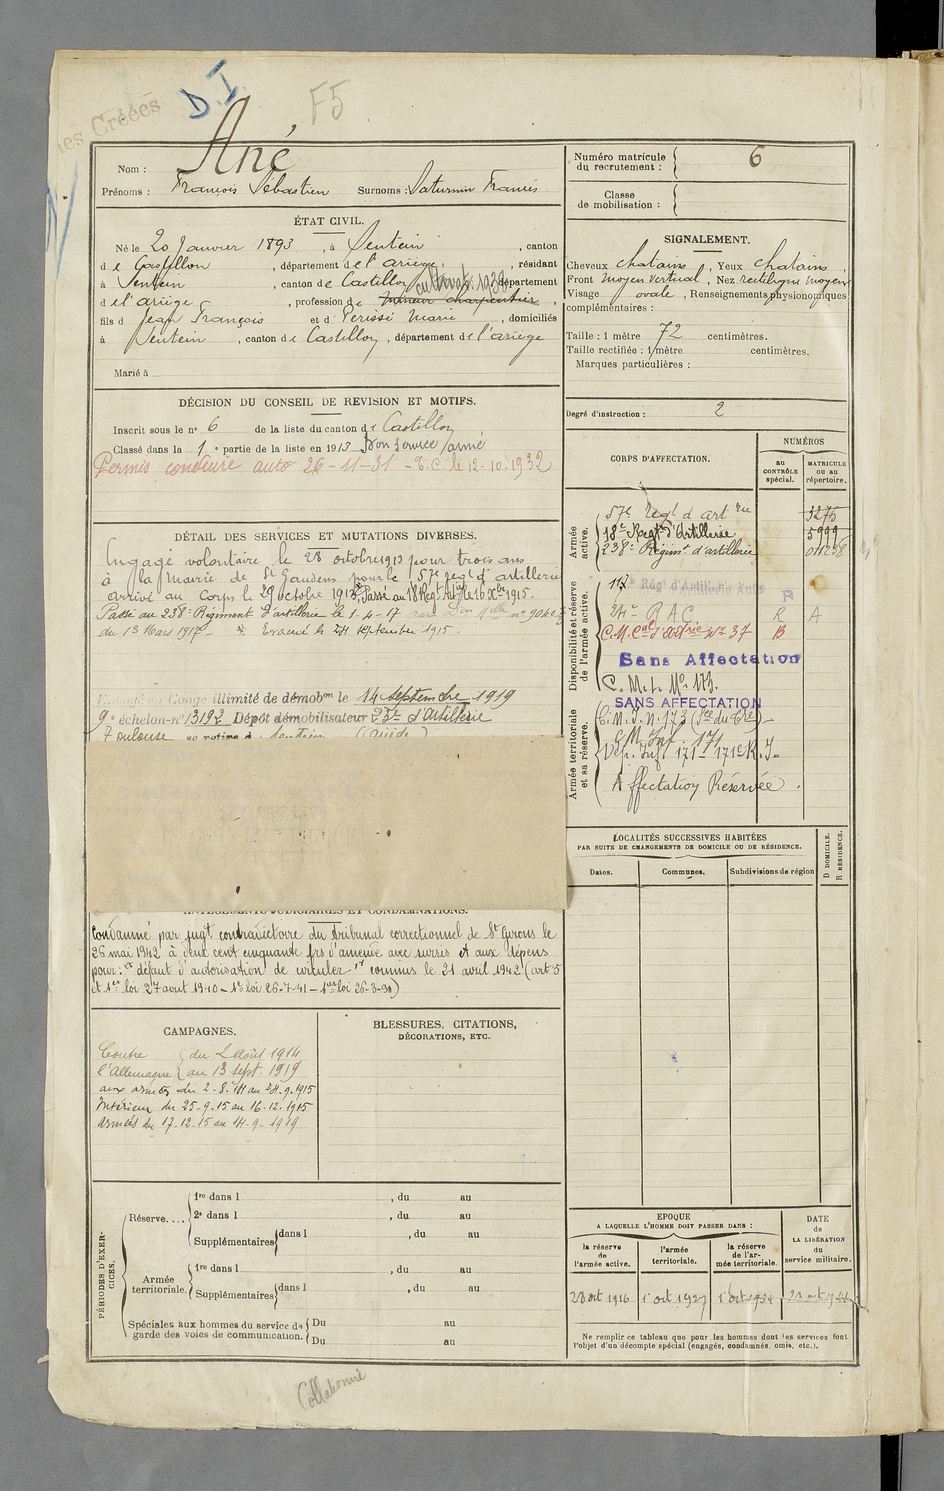 les Créées
D.I
F5
Nom : Ané
Prénoms : François Sébastien Surnoms : Saturnin Francis
ÉTAT CIVIL.
Né le 20 Janvier 1893, à Sentein, canton
de Castillon, département de l'ariège, résidant
à Sentein, canton de Castillon, département
cultivat. 1938
de l'ariège, profession de mineur charpentier,
fils de Jean François et de Périssé Marie, domiciliés
à Sentein, canton de Castillon, département de l'ariège
Marié à
DÉCISION DU CONSEIL DE REVISION ET MOTIFS.
Inscrit sous le n° 6 de la liste du canton de Castillon
Classé dans la 1e partie de la liste en 1913 Bon service armé
Permis conduire auto 26-11-31 - T.C. le 12-10-1932
DÉTAIL DES SERVICES ET MUTATIONS DIVERSES.
Engagé volontaire le 28 octobre 1913 pour trois ans
à la mairie de St Gaudens pour le 57e regt d'artillerie
arrivé au corps le 29 octobre 1913. Passé au 18e Regt Artie le 16 Xbre 1915.
Passé au 238e Régiment d'artillerie le 1-4-17 par Don Mlle n° 9040
du 13 Mars 1917 - Evacué le 24 septembre 1915.
Envoyé en Congé illimité de démobon le 14 septembre 1919
9e échelon n° 13192 Dépôt démobilisateur 23e d'Artillerie
Toulouse se retire à Sentein (Ariège)
ANTÉCÉDENTS JUDICIAIRES ET CONDAMNATIONS.
Condamné par jugt contradictoire du tribunal correctionnel de St Girons le
26 mai 1942 à deux cent cinquante frs d'amende avec sursis et aux dépens
pour : "défaut d'autorisation de circuler" commis le 21 avril 1942 (art 5
et 1er loi 27 avril 1940 - 1e loi 26-7-41 - 1ere loi 26-3-91)
CAMPAGNES.
Contre l'Allemagne du 2 Août 1914
au 13 sept. 1919
aux armées du 2-8-14 au 24-9-1915
Intérieur du 25-9-15 au 16-12-1915
armées du 17-12-15 au 14-9-1919
BLESSURES, CITATIONS,
DÉCORATIONS, ETC.
PÉRIODES D'EXERCICES.
Réserve....
1re dans l , du au
2e dans l , du au
Supplémentaires dans l , du au
Armée territoriale.
1re dans l , du au
Supplémentaires dans l , du au
Spéciales aux hommes du service de
garde des voies de communication.
Du au
Du au
Collationné
Numéro matricule
du recrutement : 6
Classe
de mobilisation :
SIGNALEMENT.
Cheveux chatains, Yeux chatains,
Front moyen vertical, Nez rectiligne moyen
Visage ovale, Renseignements physionomiques
complémentaires :
Taille : 1 mètre 72 centimètres.
Taille rectifiée : 1 mètre centimètres.
Marques particulières :
Degré d'instruction : 2
CORPS D'AFFECTATION.
NUMÉROS
au
CONTRÔLE
spécial.
MATRICULE
ou au
répertoire.
Armée
active.
57e regt d'artrie 3275
18e Regt d'Artillerie 5999
238e Régimt d'artillerie
Disponibilité et réserve
de l'armée active.
117e Rég. d'Artillerie Auto R
24e R A C R A
C.M. Cal d'Artrie n° 37 B
Sans Affectation
C. M. I. No 173.
SANS AFFECTATION
Armée territoriale
et sa réserve.
C.M.I. n. 173
C M Inf. 171
Dép. Inf. 171 - 171e R.I.
Affectation Réservée.
LOCALITÉS SUCCESSIVES HABITÉES
PAR SUITE DE CHANGEMENTS DE DOMICILE OU DE RÉSIDENCE.
Dates. Communes. Subdivisions de région
D DOMICILE.
R RÉSIDENCE.
EPOQUE
A LAQUELLE L'HOMME DOIT PASSER DANS :
la réserve
de
l'armée active.
l'armée
territoriale.
la réserve
de l'ar-
mée territoriale.
DATE
de
LA LIBÉRATION
du
service militaire.
28 oct 1916 1er oct 1927 1er oct 1934
Ne remplir ce tableau que pour les hommes dont les services font
l'objet d'un décompte spécial (engagés, condamnés, omis, etc.).